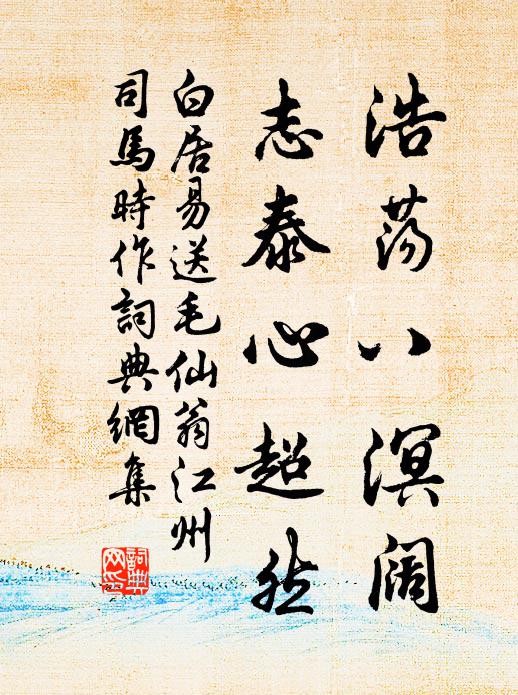 浩荡八溟阔
志泰心超然
白居易送毛仙翁江州
司馬時作詞典網集
詞典
网印